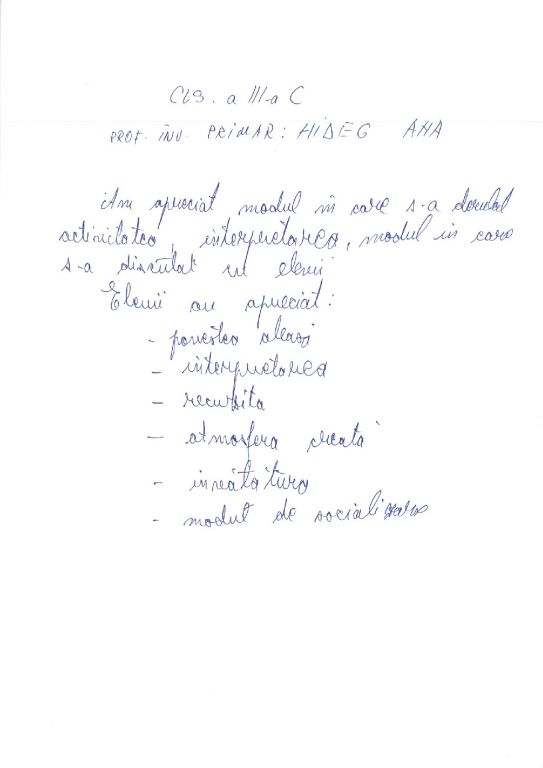 CLS. a III-a C
PROF. ÎNV. PRIMAR: HIDEG ANA
Am apreciat modul în care s-a derulat
activitatea, interpretarea, modul în care
s-a discutat cu elevii
Elevii au apreciat:
- povestea aleasă
- interpretarea
- recuzita
- atmosfera creată
- învățătura
- modul de socializare